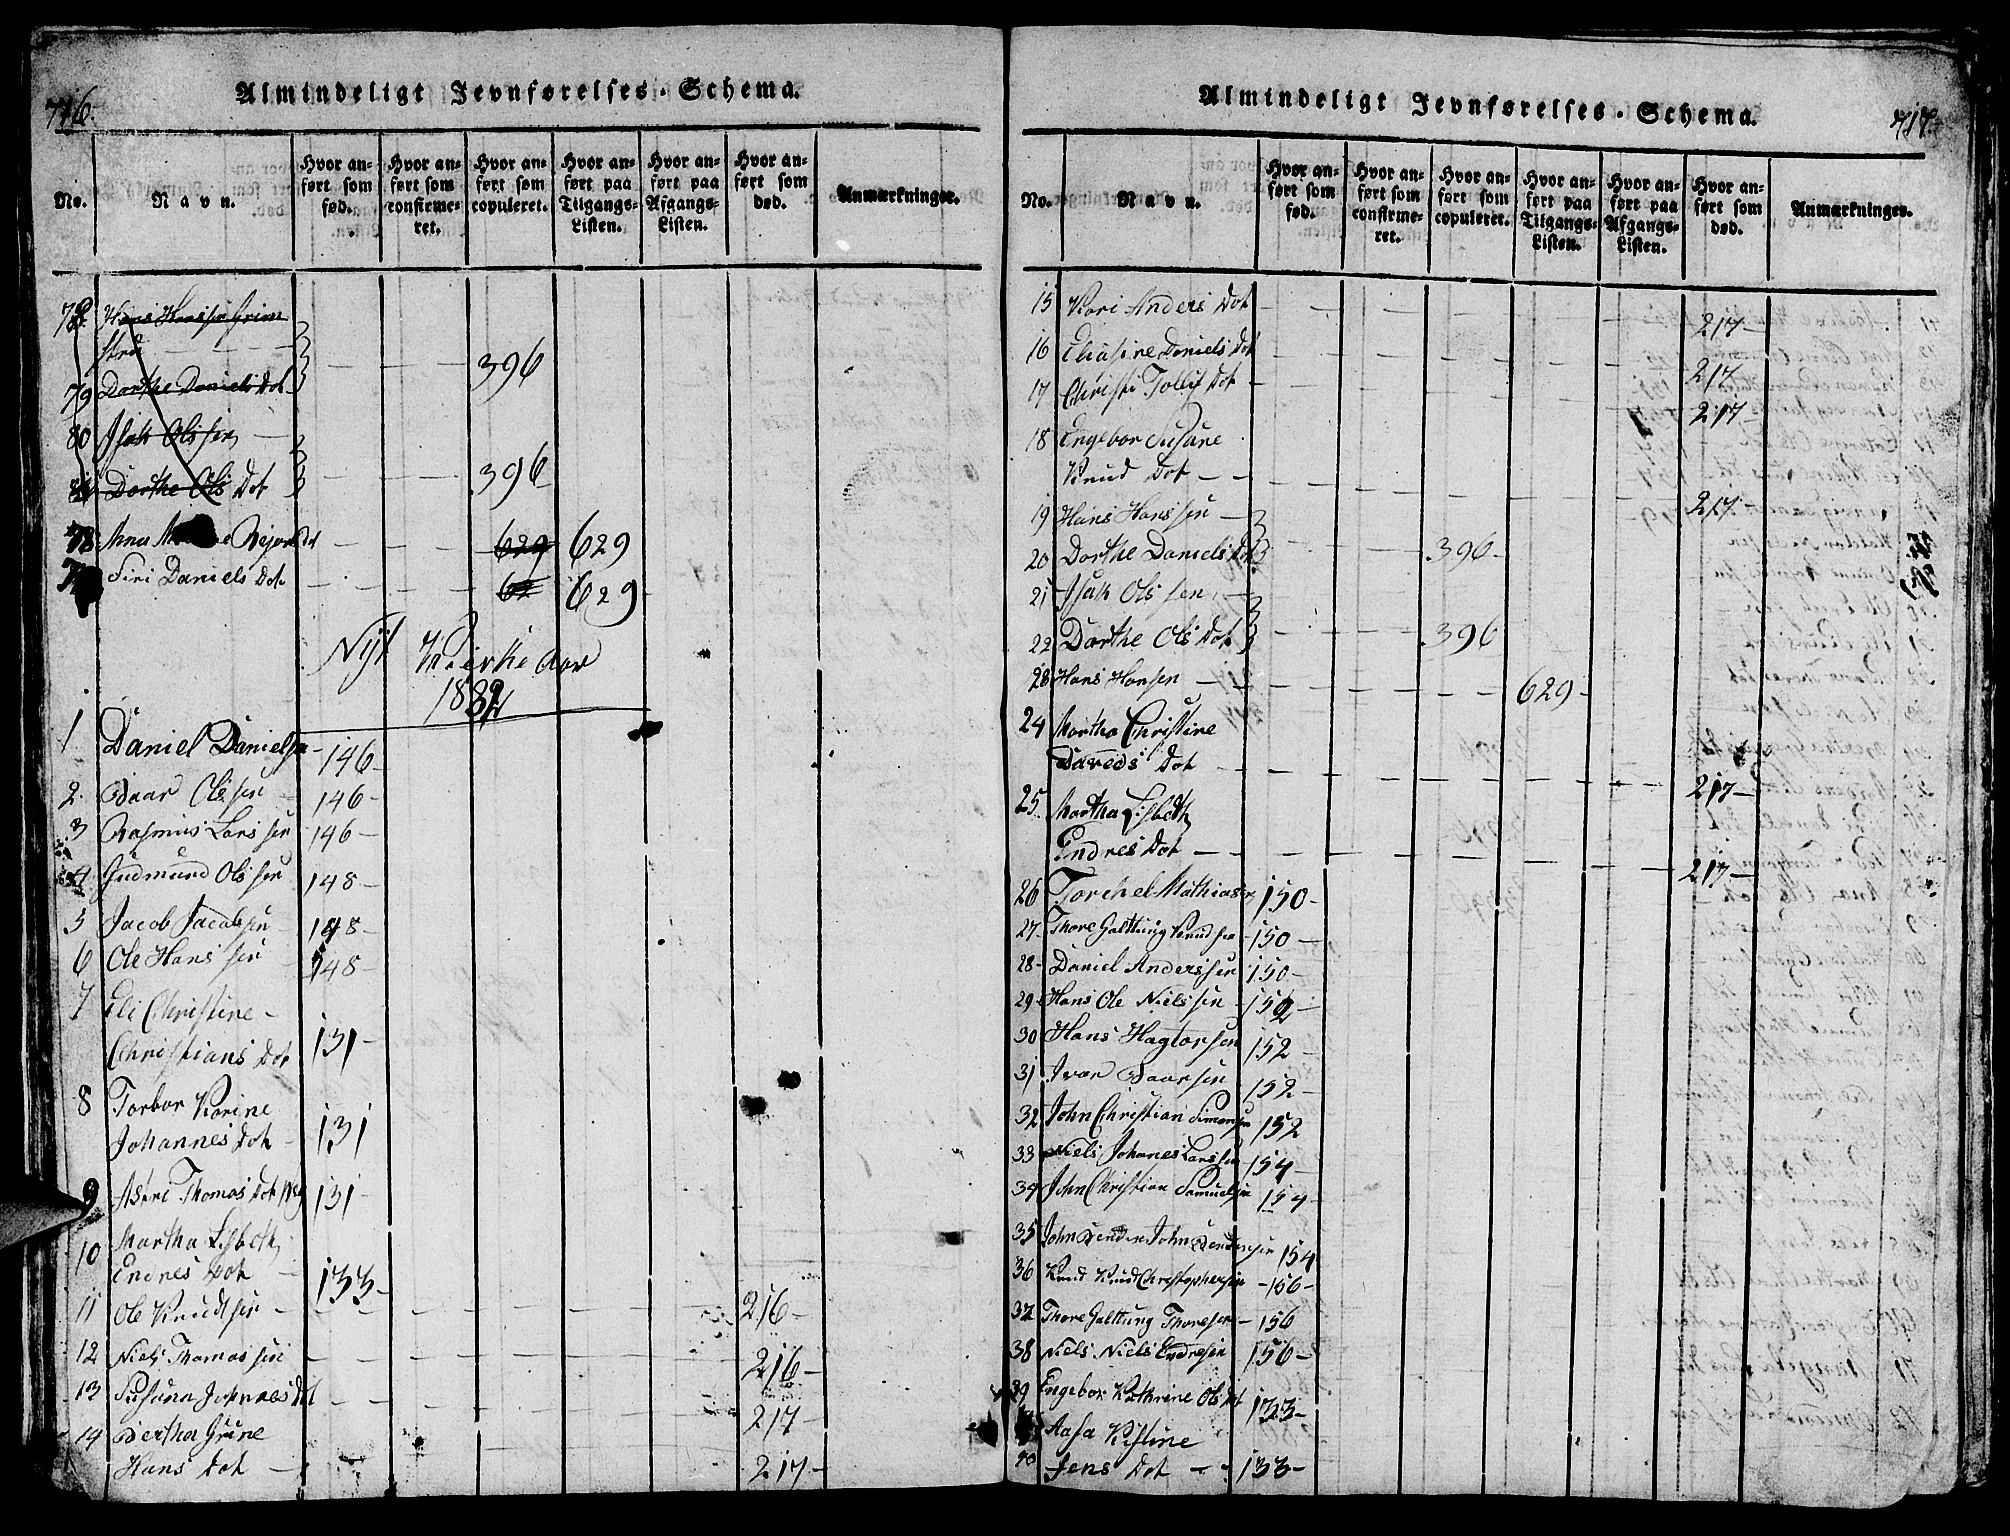 716.
Almindeligt Jevnførelses-Schema.
No.
Navn.
Hvor an-
ført som
fød.
Hvor an-
ført som
confirme-
ret.
Hvor an-
ført som
copuleret.
Hvor an-
ført paa
Tilgangs-
Listen.
Hvor an-
ført paa
Afgangs-
Listen.
Hvor an-
ført som
død.
Anmærkninger.
78 Hans Hanssen Grim
stru
79 Dorthe Daniels Dot 396
80 Isak Olssen
81 Dorthe Ols Dot 396
78 Anna 629 629
Siri Daniels Dot 62 629
Nyt Kirke Aar
1832
1 Daniel Danielsen 146
2. Baar Olssen 146
3 Rasmus Larssen 146
4 Gudmund Olssen 148
5 Jacob Jacobsen 148
6 Ole Hanssen 148
7 Eli Christine
Christians Dot 131
8 Torbor Karine
Johannes Dot 131
9 Astri Thomas Dot 131
10 Martha Lisbeth
Endres Dot 133
11 Ole Knudsen 216
12 Niels Thomassen 216
13 Susana Johnaes Dot 217
14 Bertha Grune
Hans Dot 217
717.
Almindeligt Jevnførelses-Schema.
No.
Navn.
Hvor an-
ført som
fød.
Hvor an-
ført som
confirme-
ret.
Hvor an-
ført som
copuleret.
Hvor an-
ført paa
Tilgangs-
Listen.
Hvor an-
ført paa
Afgangs-
Listen.
Hvor an-
ført som
død.
Anmærkninger.
15 Kari Anders Dot 217
16 Daniels Dot 217
17 Christi Tollis Dot 217
18 Engebor Susane
Knud Dot 217
19 Hans Hanssen
20 Dorthe Daniels Dot 396
21 Isak Olssen
22 Dorthe Ols Dot 396
23 Hans Hansen 629
24 Martha Christine
Davids Dot 217
25 Martha Lisbeth
Endres Dot 217
26 Torchel Mathiassen 150
27 Thore Galtung Knudsen 150
28 Daniel Anderssen 150
29 Hans Ole Nielssen 152
30 Hans Hagtorsen 152
31 Ivar Baarsen 152
32 John Christian Simonsen 152
33 Niels Johanes Larssen 154
34 John Christian Samuelsen 154
35 John John 154
36 Knud Knud Christophersen 156
37 Thore Galtung Thoresen 156
38 Niels Niels Endresen 156
39 Engebor Kathrine Ols Dot 133
40 Aasa Kistine
Jens Dot 133